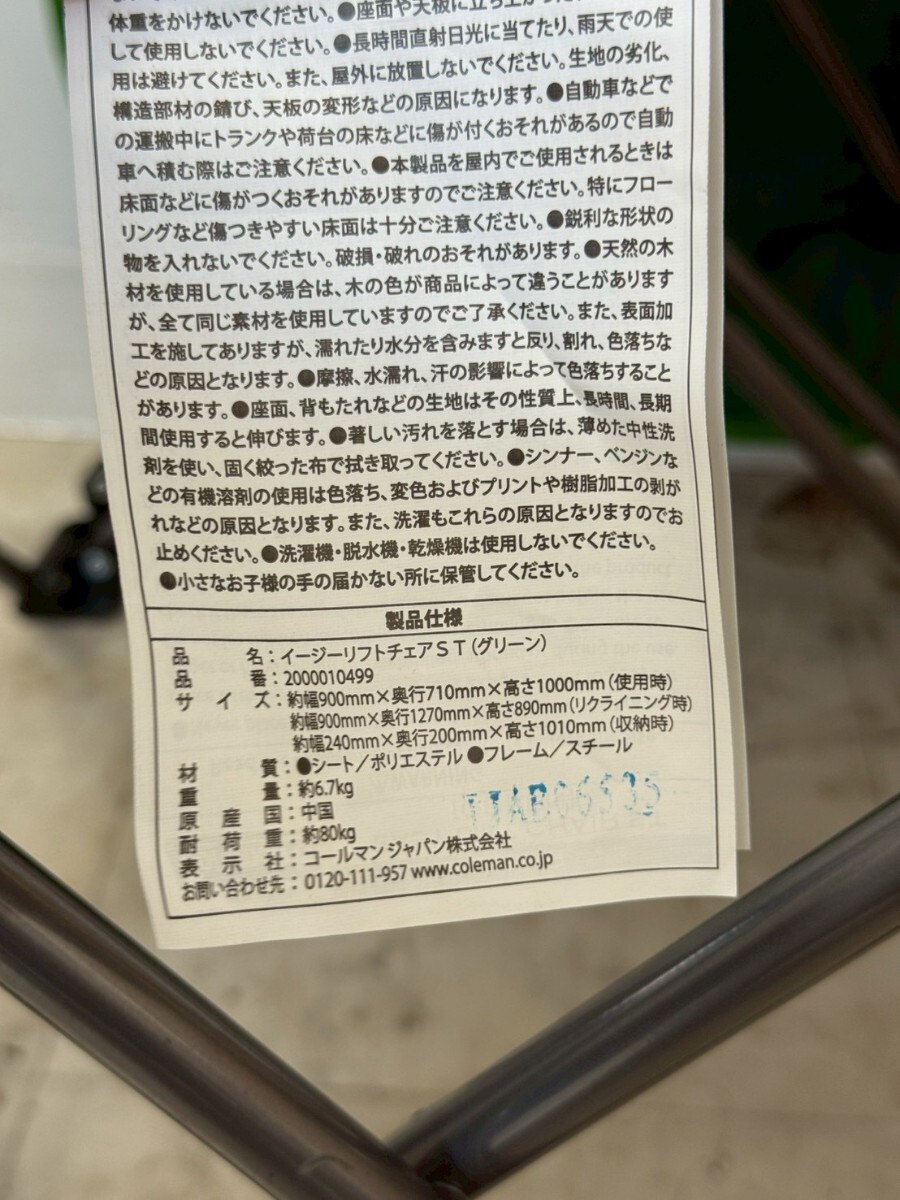 体重をかけないでください。●座面や天板に立ち上が
して使用しないでください。●長時間直射日光に当てたり、雨天での使
用は避けてください。また、屋外に放置しないでください。生地の劣化、
構造部材の錆び、天板の変形などの原因になります。●自動車などで
の運搬中にトランクや荷台の床などに傷が付くおそれがあるので自動
車へ積む際はご注意ください。●本製品を屋内でご使用されるときは
床面などに傷がつくおそれがありますのでご注意ください。特にフロー
リングなど傷つきやすい床面は十分ご注意ください。●鋭利な形状の
物を入れないでください。破損・破れのおそれがあります。●天然の木
材を使用している場合は、木の色が商品によって違うことがあります
が、全て同じ素材を使用していますのでご了承ください。また、表面加
工を施してありますが、濡れたり水分を含みますと反り、割れ、色落ちな
どの原因となります。●摩擦、水濡れ、汗の影響によって色落ちすること
があります。●座面、背もたれなどの生地はその性質上、長時間、長期
間使用すると伸びます。●著しい汚れを落とす場合は、薄めた中性洗
剤を使い、固く絞った布で拭き取ってください。●シンナー、ベンジンな
どの有機溶剤の使用は色落ち、変色およびプリントや樹脂加工の剥が
れなどの原因となります。また、洗濯もこれらの原因となりますのでお
止めください。●洗濯機・脱水機・乾燥機は使用しないでください。
●小さなお子様の手の届かない所に保管してください。
製品仕様
品名：イージーリフトチェアＳＴ（グリーン）
品番：2000010499
サイズ：約幅900mm×奥行710mm×高さ1000mm（使用時）
約幅900mm×奥行1270mm×高さ890mm（リクライニング時）
約幅240mm×奥行200mm×高さ1010mm（収納時）
材質：●シート／ポリエステル ●フレーム／スチール
重量：約6.7kg
原産国：中国
耐荷重：約80kg
表示社：コールマン ジャパン株式会社
お問い合わせ先：0120-111-957 www.coleman.co.jp